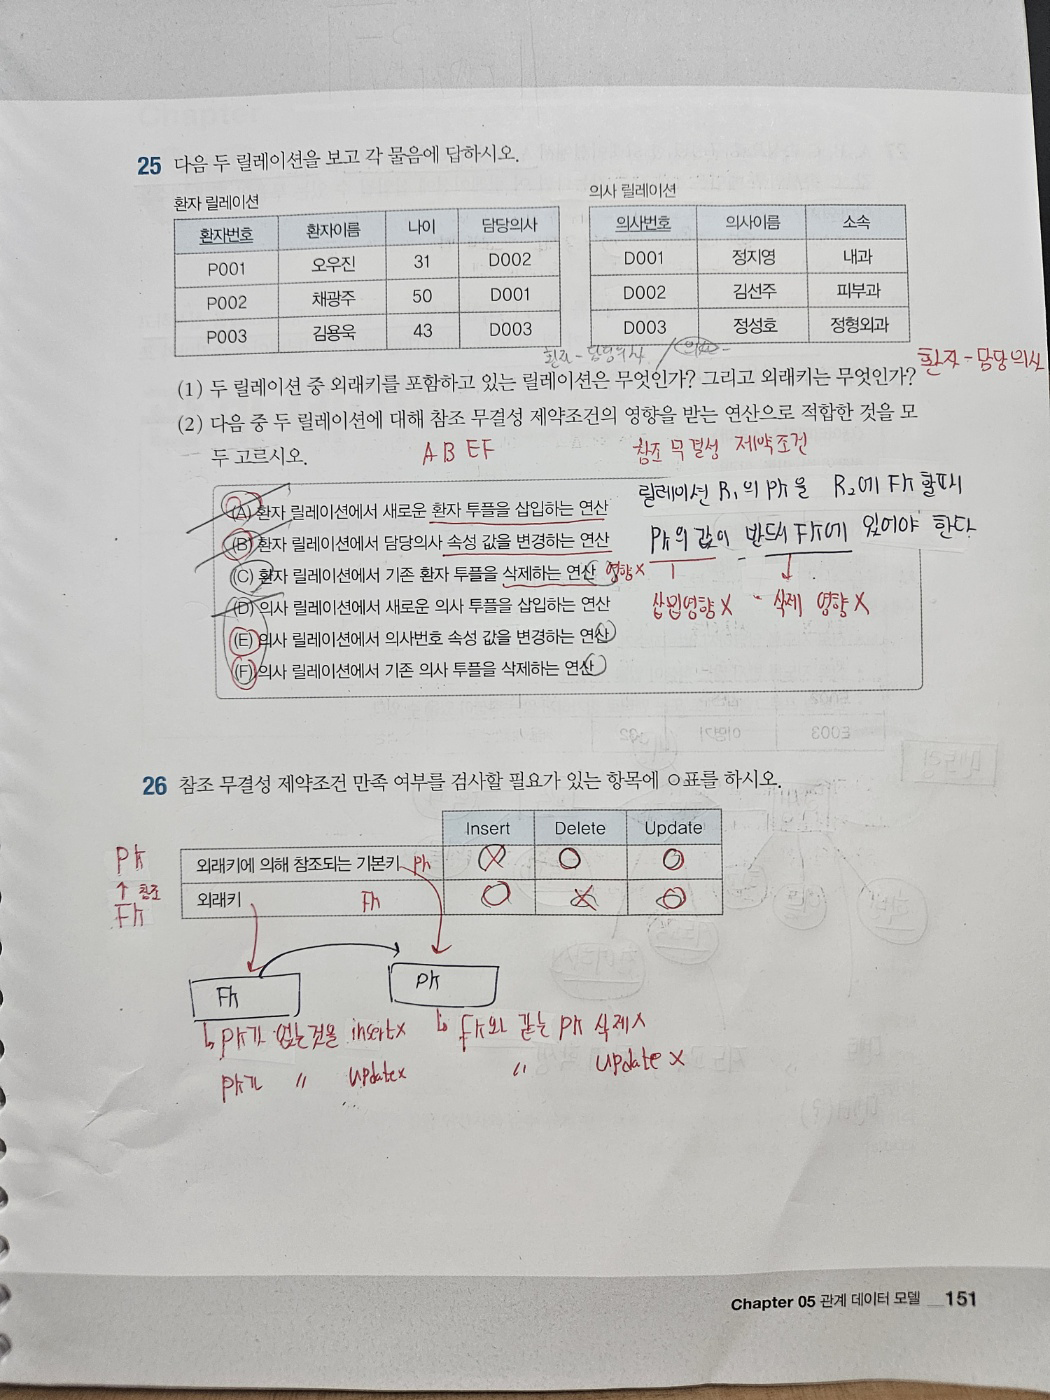 25 다음 두 릴레이션을 보고 각 물음에 답하시오.
환자 릴레이션
환자번호 환자이름 나이 담당의사
P001 오우진 31 D002
P002 채광주 50 D001
P003 김용욱 43 D003
의사 릴레이션
의사번호 의사이름 소속
D001 정지영 내과
D002 김선주 피부과
D003 정성호 정형외과
환자-담당의사
(1) 두 릴레이션 중 외래키를 포함하고 있는 릴레이션은 무엇인가? 그리고 외래키는 무엇인가?
환자-담당의사
(2) 다음 중 두 릴레이션에 대해 참조 무결성 제약조건의 영향을 받는 연산으로 적합한 것을 모
두 고르시오.
A B E F
참조 무결성 제약조건
릴레이션 R1의 PK을 R2에 FK 할때
PK의 값이 반드시 FK에 있어야 한다
삽입영향X - 삭제 영향X
(A) 환자 릴레이션에서 새로운 환자 투플을 삽입하는 연산
(B) 환자 릴레이션에서 담당의사 속성 값을 변경하는 연산
(C) 환자 릴레이션에서 기존 환자 투플을 삭제하는 연산 영향X
(D) 의사 릴레이션에서 새로운 의사 투플을 삽입하는 연산
(E) 의사 릴레이션에서 의사번호 속성 값을 변경하는 연산
(F) 의사 릴레이션에서 기존 의사 투플을 삭제하는 연산
26 참조 무결성 제약조건 만족 여부를 검사할 필요가 있는 항목에 ○표를 하시오.
Insert Delete Update
외래키에 의해 참조되는 기본키 PK X O O
외래키 FK O X O
PK
↑ 참조
FK
FK
PK
PK가 없는것을 insert X
PK가 〃 update X
FK와 같는 PK 삭제 X
〃 update X
Chapter 05 관계 데이터 모델 151